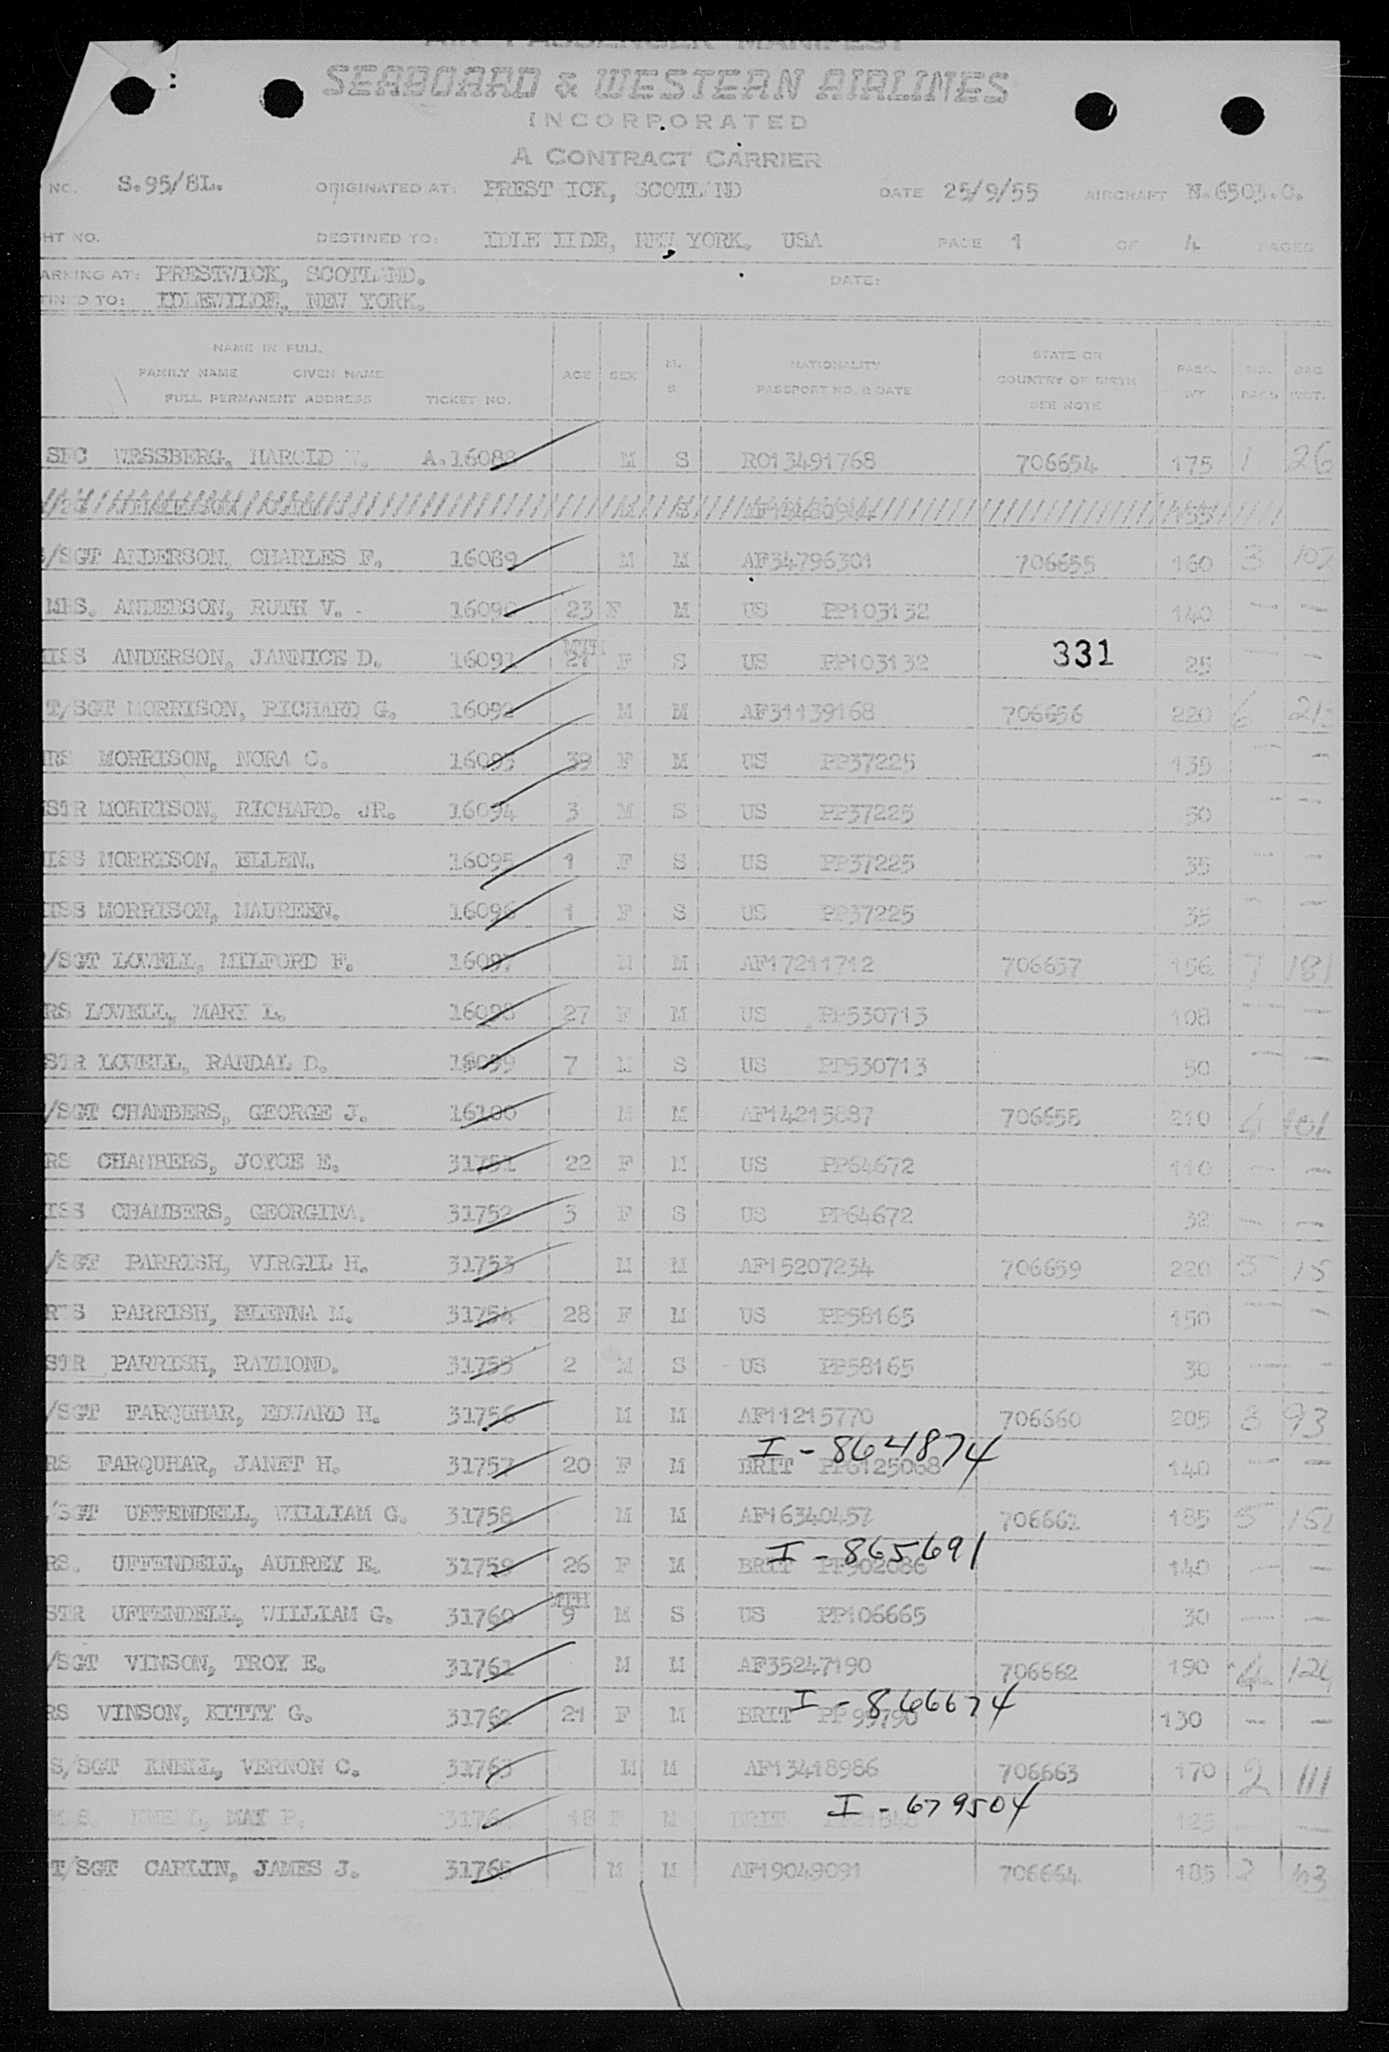 AIR PASSENGER MANIFEST
SEABOARD & WESTERN AIRLINES
INCORPORATED
A CONTRACT CARRIER
NO. S.95/8L. ORIGINATED AT: PREST ICK, SCOTL ND DATE 25/9/55 AIRCRAFT N.6503.C.
HT NO. DESTINED TO: IDLE IIDE, NEW YORK. USA PAGE 1 OF 4 PAGES
ARKING AT: PRESTWICK, SCOTLAND. DATE:
TINED TO: IDLEWILDE, NEW YORK.
NAME IN FULL
FAMILY NAME GIVEN NAME
FULL PERMANENT ADDRESS TICKET NO. AGE SEX M. S NATIONALITY PASSPORT NO. & DATE STATE OR COUNTRY OF BIRTH SEE NOTE PASS. WT NO. BAGS BAG WGT.
SFC WESSBERG, HAROLD A.16088 M S RO13491768 706654 175 1 26
M S
/SGT ANDERSON, CHARLES F. 16089 M M AF34796301 706655 160 3 102
MRS. ANDERSON, RUTH V. - 16090 23 F M US PP103132 140 — —
ISS ANDERSON, JANNICE D. 16091 MTH 21 F S US PP103132 331 25 — —
T/SGT MORRISON, RICHARD G. 16092 M M AF31139168 706656 220 6
RS MORRISON, NORA C. 16093 39 F M US PP37225 135 — —
STR MORRISON, RICHARD. JR. 16094 3 M S US PP37225 50 — —
ISS MORRISON, ELLEN. 16095 1 F S US PP37225 35 — —
ISS MORRISON, MAUREEN. 16096 1 F S US PP37225 35 — —
/SGT LOVELL, MILFORD F. 16097 M M AF17211712 706657 156 7 181
RS LOVELL, MARY L. 16098 27 F M US PP530713 108 — —
STR LOVELL, RANDAL D. 16099 7 M S US PP530713 50 — —
/SGT CHAMBERS, GEORGE J. 16100 M M AF14215887 706658 210 4 101
RS CHAMBERS, JOYCE E. 31751 22 F M US PP64672 110 — —
ISS CHAMBERS, GEORGINA. 31752 3 F S US PP64672 32 — —
/SGT PARRISH, VIRGIL H. 31753 M M AF15207234 706659 220 5 15
R S PARRISH, BLENNA M. 31754 28 F M US PP58165 150 — —
STR PARRISH, RAYMOND. 31755 2 M S US PP58165 30 — —
/SGT FARQUHAR, EDWARD H. 31756 M M AF11215770 706660 205 3 93
I - 864874
RS FARQUHAR, JANET H. 31757 20 F M BRIT PP6125068 140 — —
/SGT UFFENDELL, WILLIAM G. 31758 M M AF16340457 706661 185 5 152
I - 865691
RS. UFFENDELL, AUDREY E. 31759 26 F M BRIT PP902086 140 — —
STR UFFENDELL, WILLIAM G. 31760 MTH 9 M S US PP106665 30 — —
/SGT VINSON, TROY E. 31761 M M AF35247190 706662 190 4 124
I - 866674
RS VINSON, KITTY G. 31762 21 F M BRIT PP 99790 130 — —
S/SGT KNELL, VERNON C. 31763 M M AF13418986 706663 170 2 111
I - 679504
MAY P. 18 F M BRIT 125 — —
T/SGT CARLIN, JAMES J. 31765 M M AF19049091 706664 185 2 63